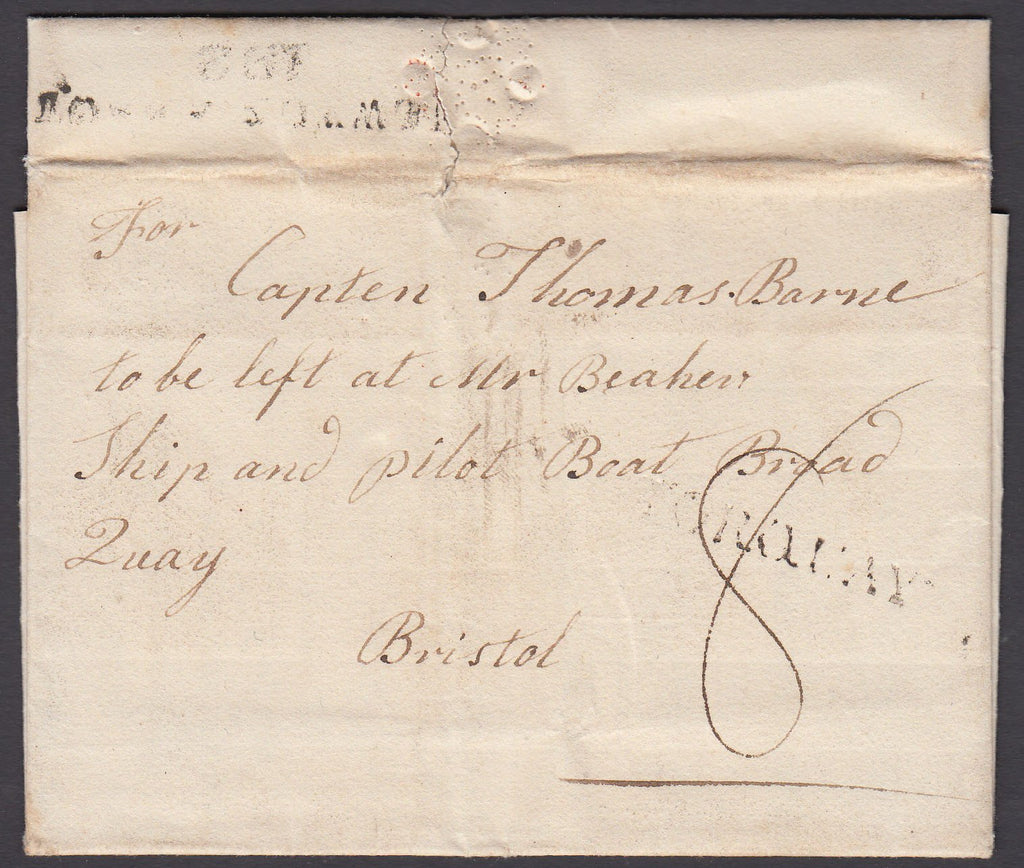 For
Capten Thomas Barne
to be left at Mr
Ship and pilot Boat Broad
Quay
Bristol
8
TORQUAY